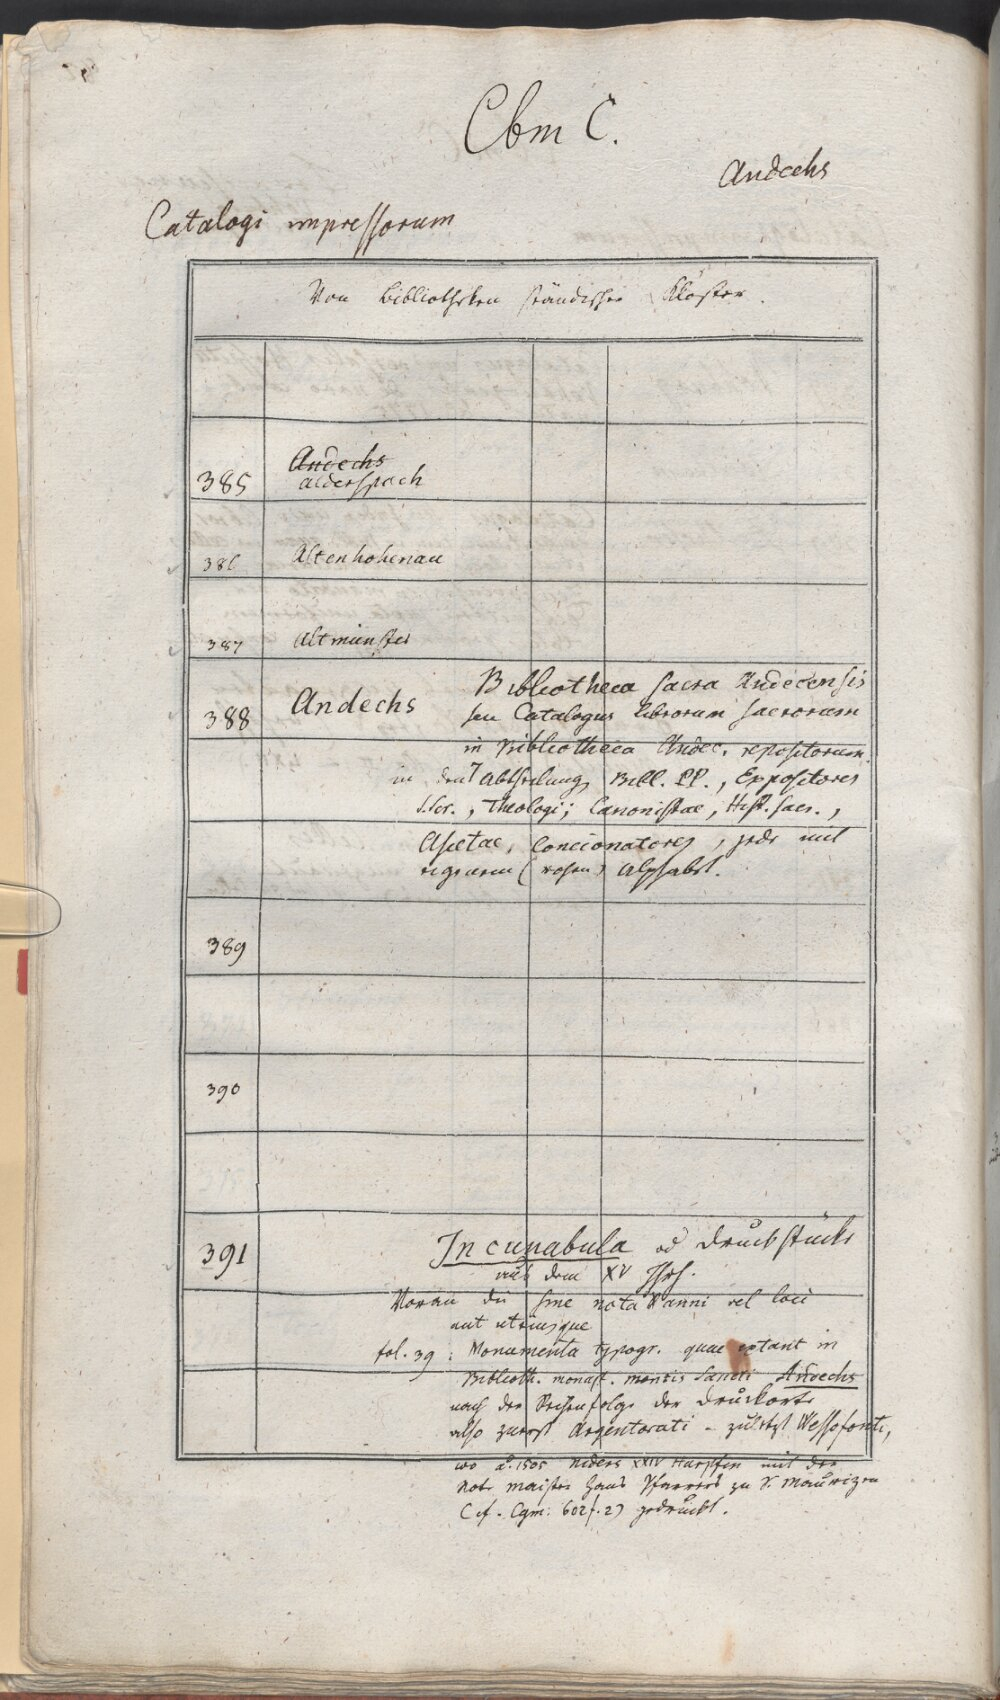 Cbm C.
Andechs
Catalogi impressorum
Von Bibliotheken ständischer Klöster.
Andechs
385 Alderspach
386 Altenhohenau
387 Altmünster
Bibliotheca sacra Andecensis
388 Andechs seu Catalogus librorum sacrorum
in Bibliotheca Andec. repositorum.
in den 7 Abtheilungen Bibl. PP., Expositores
S.Scr., Theologi; Canonistae, Hist. sacr.,
Ascetae, Concionatores, jede mit
eigenem (rohen) Alphabet.
389
390
391 Incunabula od Druckstücke
aus dem XV Jhrh.
Voran die sine nota anni vel loci
aut utriusque
fol. 39: Monumenta typogr. quae extant in
Biblioth. monast. montis Sancti Andechs
nach der Reihenfolge der Druckorte
also zuerst Argentorati - zuletzt Wessofonti,
wo a. 1505 Niders XXIV Harpfen mit der
Note maister Hans Pfarrers zu S. Mauritzen
(cf. Cgm. 602 f. 2) gedruckt.